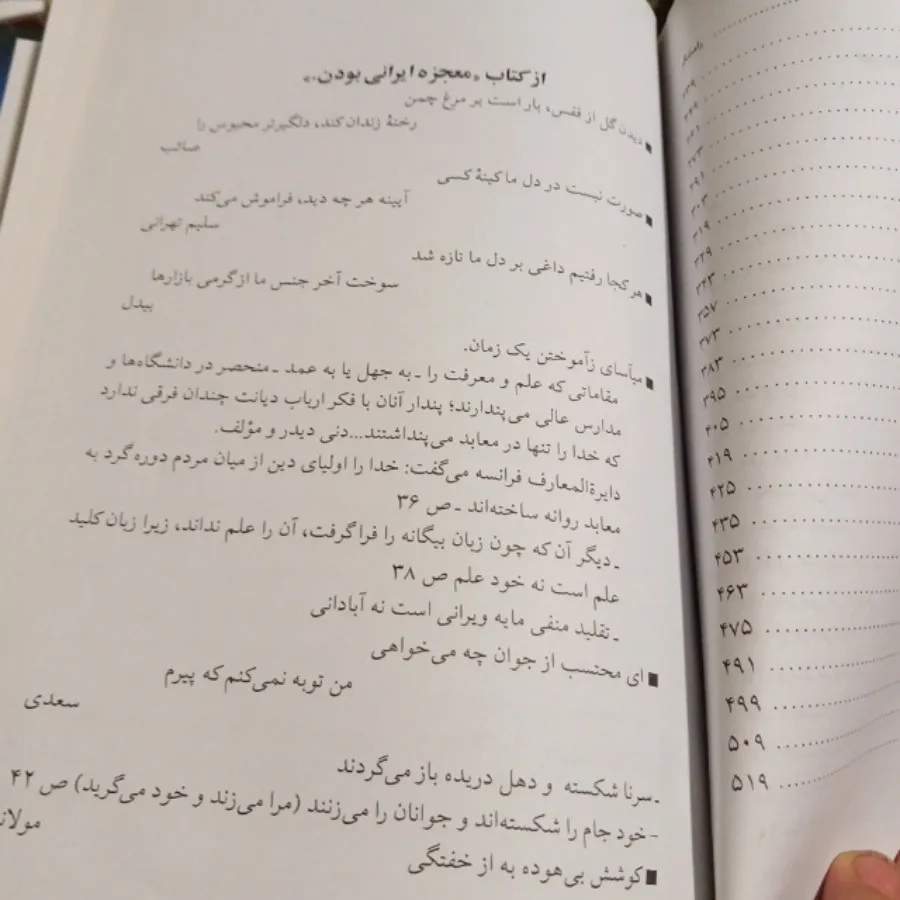 از کتاب «معجزه ایرانی بودن.»
■ دیدن گل از قفس، بار است بر مرغ چمن
رخنهٔ زندان کند، دلگیرتر محبوس را
صائب
■ صورت نبست در دل ما کینهٔ کسی
آیینه هر چه دید، فراموش می‌کند
سلیم تهرانی
■ هر کجا رفتیم داغی بر دل ما تازه شد
سوخت آخر جنس ما از گرمی بازارها
بیدل
■ میآسای زآموختن یک زمان.
مقاماتی که علم و معرفت را ـ به جهل یا به عمد ـ منحصر در دانشگاه‌ها و
مدارس عالی می‌پندارند؛ پندار آنان با فکر ارباب دیانت چندان فرقی ندارد
که خدا را تنها در معابد می‌پنداشتند...دنی دیدر و مؤلف.
دایرةالمعارف فرانسه می‌گفت: خدا را اولیای دین از میان مردم دوره‌گرد به
معابد روانه ساخته‌اند ـ ص ۳۶
ـ دیگر آن که چون زبان بیگانه را فراگرفت، آن را علم نداند، زیرا زبان کلید
علم است نه خود علم ص ۳۸
ـ تقلید منفی مایه ویرانی است نه آبادانی
■ ای محتسب از جوان چه می‌خواهی
من توبه نمی‌کنم که پیرم
سعدی
ـ سرنا شکسته و دهل دریده باز می‌گردند
- خود جام را شکسته‌اند و جوانان را می‌زنند (مرا می‌زند و خود می‌گرید) ص ۴۲
■ کوشش بی‌هوده به از خفتگی
مولانا
۲۴۹
۲۶۱
۲۷۳
۲۹۱
۳۰۳
۳۱۹
۳۲۹
۳۴۳
۳۵۷
۳۷۳
۳۸۳
۳۹۵
۴۰۵
۴۱۹
۴۲۵
۴۳۵
۴۵۳
۴۶۳
۴۷۵
۴۹۱
۴۹۹
۵۰۹
۵۱۹